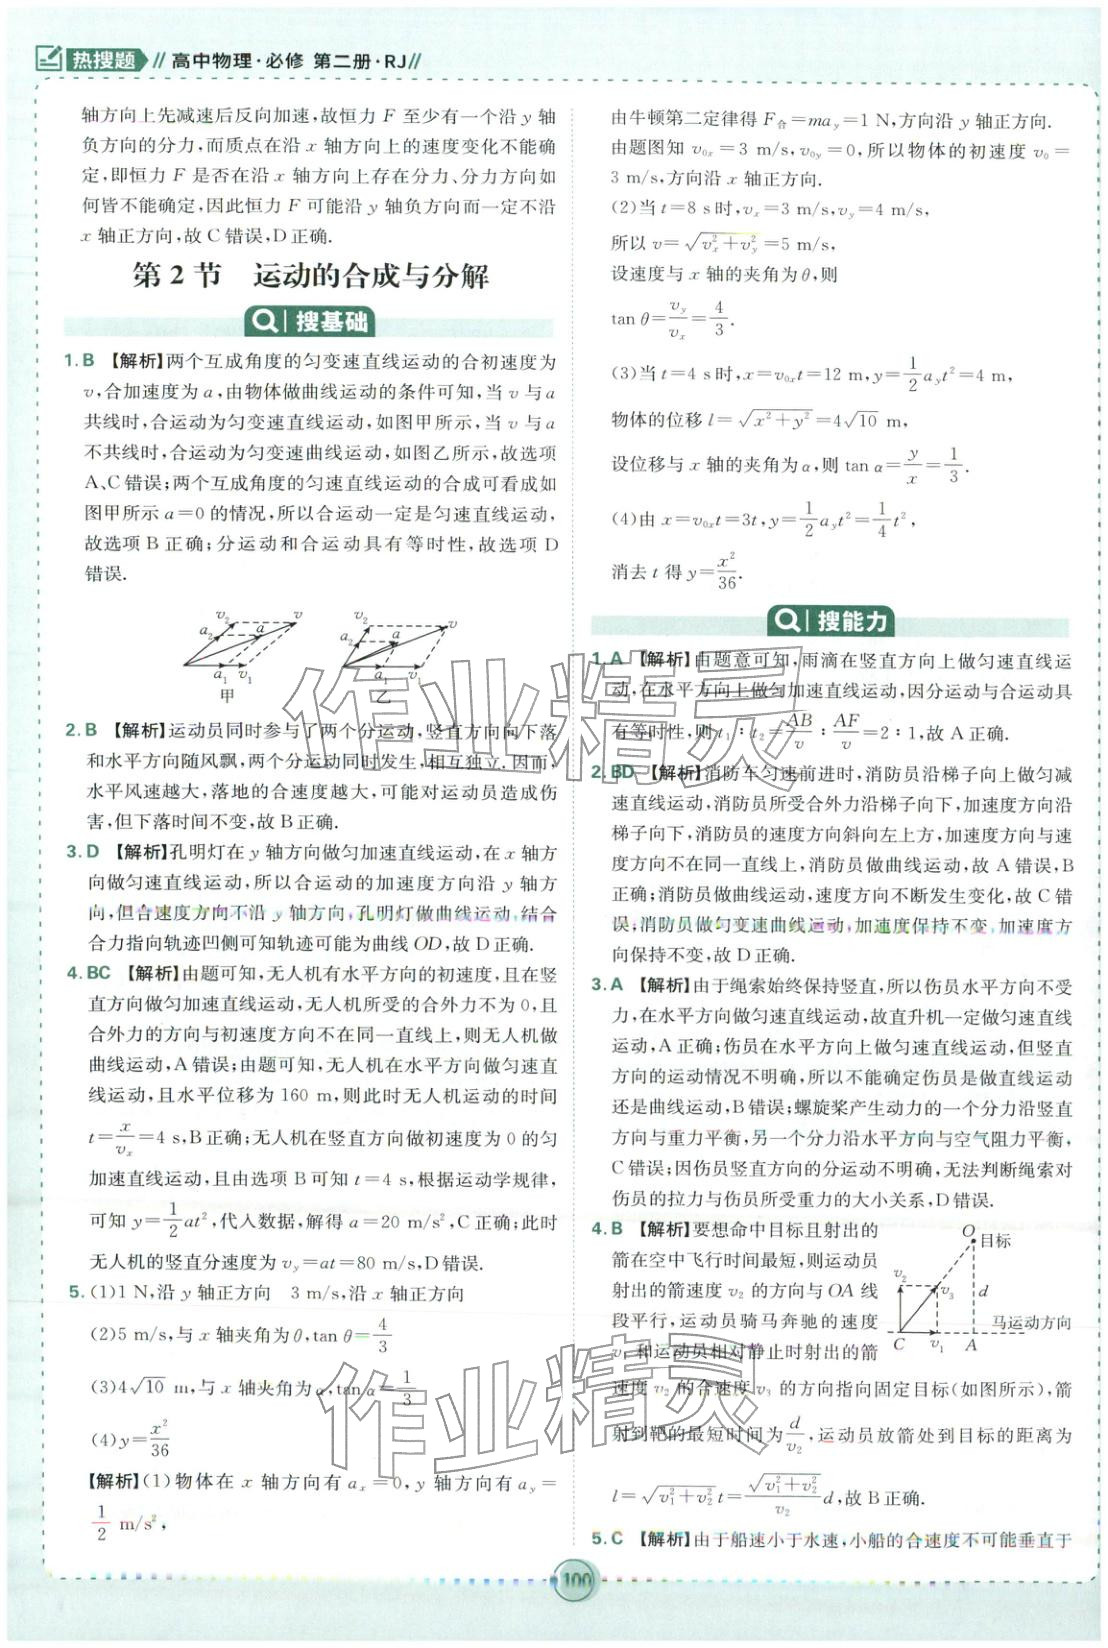 热搜题 // 高中物理·必修 第二册·RJ//
轴方向上先减速后反向加速,故恒力 F 至少有一个沿 y 轴
负方向的分力,而质点在沿 x 轴方向上的速度变化不能确
定,即恒力 F 是否在沿 x 轴方向上存在分力、分力方向如
何皆不能确定,因此恒力 F 可能沿 y 轴负方向而一定不沿
x 轴正方向,故 C 错误,D 正确.
第 2 节 运动的合成与分解
搜基础
1. B 【解析】两个互成角度的匀变速直线运动的合初速度为
v,合加速度为 a,由物体做曲线运动的条件可知,当 v 与 a
共线时,合运动为匀变速直线运动,如图甲所示,当 v 与 a
不共线时,合运动为匀变速曲线运动,如图乙所示,故选项
A、C 错误;两个互成角度的匀速直线运动的合成可看成如
图甲所示 a=0 的情况,所以合运动一定是匀速直线运动,
故选项 B 正确;分运动和合运动具有等时性,故选项 D
错误.
v₂ v a₂ a a₁ v₁ 甲
v₂ v a₂ a a₁ v₁ 乙
2. B 【解析】运动员同时参与了两个分运动,竖直方向向下落
和水平方向随风飘,两个分运动同时发生,相互独立.因而,
水平风速越大,落地的合速度越大,可能对运动员造成伤
害,但下落时间不变,故 B 正确.
3. D 【解析】孔明灯在 y 轴方向做匀加速直线运动,在 x 轴方
向做匀速直线运动,所以合运动的加速度方向沿 y 轴方
向,但合速度方向不沿 y 轴方向,孔明灯做曲线运动,结合
合力指向轨迹凹侧可知轨迹可能为曲线 OD,故 D 正确.
4. BC 【解析】由题可知,无人机有水平方向的初速度,且在竖
直方向做匀加速直线运动,无人机所受的合外力不为 0,且
合外力的方向与初速度方向不在同一直线上,则无人机做
曲线运动,A 错误;由题可知,无人机在水平方向做匀速直
线运动,且水平位移为 160 m,则此时无人机运动的时间
t=x/vₓ=4 s,B 正确;无人机在竖直方向做初速度为 0 的匀
加速直线运动,且由选项 B 可知 t=4 s,根据运动学规律,
可知 y=1/2at²,代入数据,解得 a=20 m/s²,C 正确;此时
无人机的竖直分速度为 v_y=at=80 m/s,D 错误.
5. (1)1 N,沿 y 轴正方向 3 m/s,沿 x 轴正方向
(2)5 m/s,与 x 轴夹角为 θ,tan θ=4/3
(3)4√10 m,与 x 轴夹角为 α,tan α=1/3
(4)y=x²/36
【解析】(1)物体在 x 轴方向有 aₓ=0,y 轴方向有 a_y=
1/2 m/s²,
由牛顿第二定律得 F合=ma_y=1 N,方向沿 y 轴正方向.
由题图知 v₀ₓ=3 m/s,v₀y=0,所以物体的初速度 v₀=
3 m/s,方向沿 x 轴正方向.
(2)当 t=8 s 时,vₓ=3 m/s,v_y=4 m/s,
所以 v=√(vₓ²+v_y²)=5 m/s,
设速度与 x 轴的夹角为 θ,则
tan θ=v_y/vₓ=4/3.
(3)当 t=4 s 时,x=v₀ₓt=12 m,y=1/2a_yt²=4 m,
物体的位移 l=√(x²+y²)=4√10 m,
设位移与 x 轴的夹角为 α,则 tan α=y/x=1/3.
(4)由 x=v₀ₓt=3t,y=1/2a_yt²=1/4t²,
消去 t 得 y=x²/36.
搜能力
1. A 【解析】由题意可知,雨滴在竖直方向上做匀速直线运
动,在水平方向上做匀加速直线运动,因分运动与合运动具
有等时性,则 t₁∶t₂=AB/v∶AF/v=2∶1,故 A 正确.
2. BD 【解析】消防车匀速前进时,消防员沿梯子向上做匀减
速直线运动,消防员所受合外力沿梯子向下,加速度方向沿
梯子向下,消防员的速度方向斜向左上方,加速度方向与速
度方向不在同一直线上,消防员做曲线运动,故 A 错误,B
正确;消防员做曲线运动,速度方向不断发生变化,故 C 错
误;消防员做匀变速曲线运动,加速度保持不变,加速度方
向保持不变,故 D 正确.
3. A 【解析】由于绳索始终保持竖直,所以伤员水平方向不受
力,在水平方向做匀速直线运动,故直升机一定做匀速直线
运动,A 正确;伤员在水平方向上做匀速直线运动,但竖直
方向的运动情况不明确,所以不能确定伤员是做直线运动
还是曲线运动,B 错误;螺旋桨产生动力的一个分力沿竖直
方向与重力平衡,另一个分力沿水平方向与空气阻力平衡,
C 错误;因伤员竖直方向的分运动不明确,无法判断绳索对
伤员的拉力与伤员所受重力的大小关系,D 错误.
4. B 【解析】要想命中目标且射出的
箭在空中飞行时间最短,则运动员
射出的箭速度 v₂ 的方向与 OA 线
段平行,运动员骑马奔驰的速度
v₁ 和运动员相对静止时射出的箭
O 目标 v₂ v₃ d 马运动方向 C v₁ A
速度 v₂ 的合速度 v₃ 的方向指向固定目标(如图所示),箭
射到靶的最短时间为 d/v₂,运动员放箭处到目标的距离为
l=√(v₁²+v₂²)t=√(v₁²+v₂²)/v₂ d,故 B 正确.
5. C 【解析】由于船速小于水速,小船的合速度不可能垂直于
100
作业精灵
作业精灵